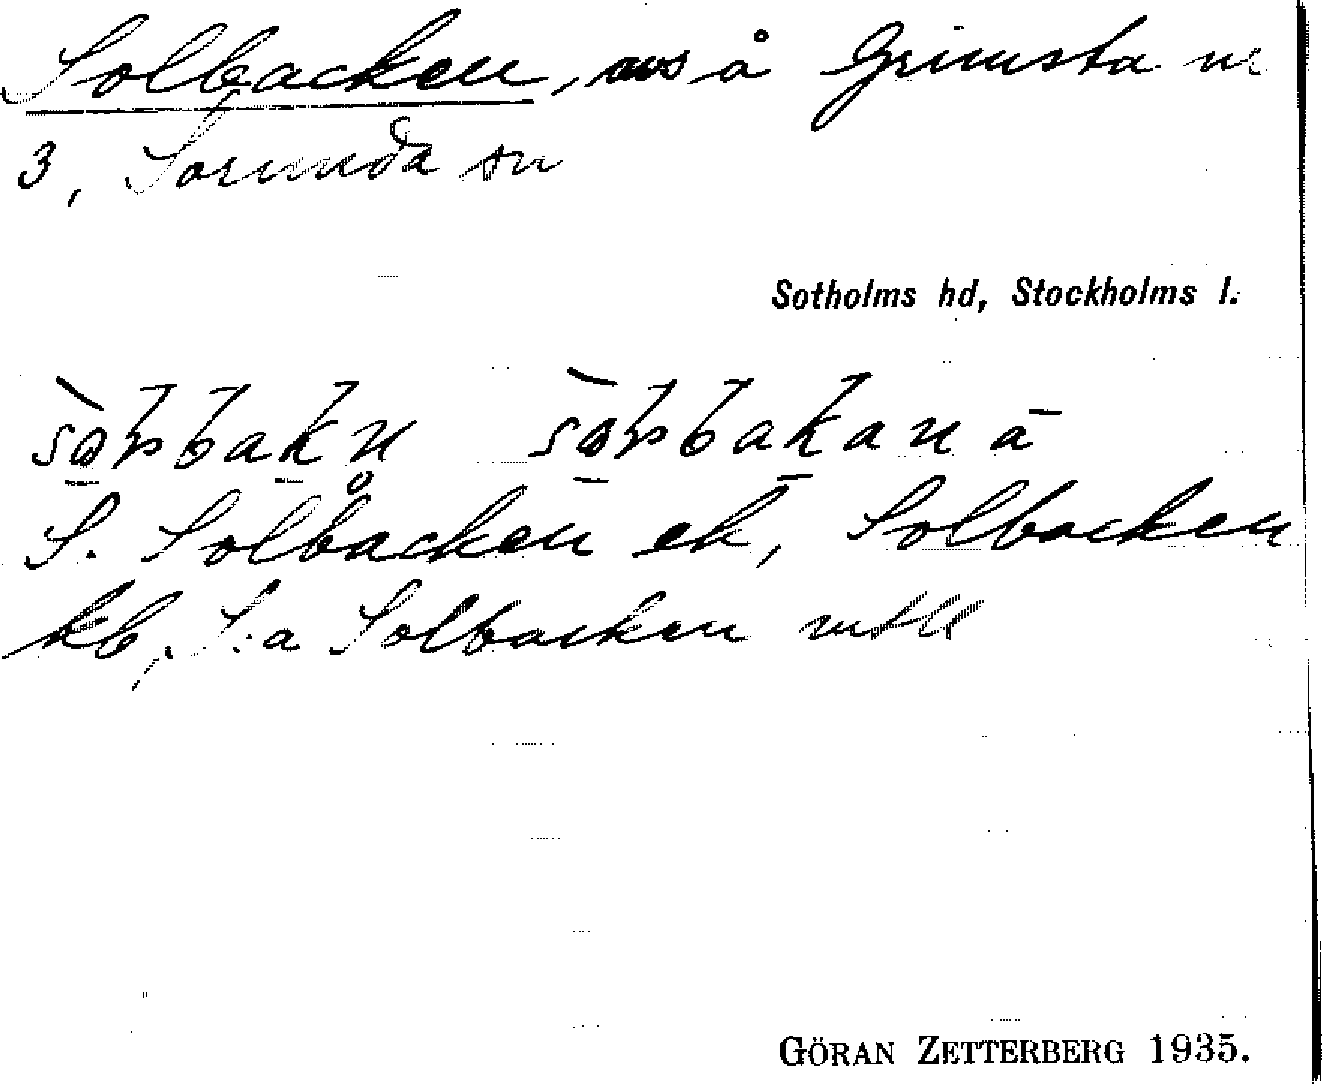 Solbacken, avs å Grimsta nr
3, Sorunda sn
Sotholms hd, Stockholms l.
S. Solbacken ek, Solbacken
kb, S:a Solbacken
GÖRAN ZETTERBERG 1935.